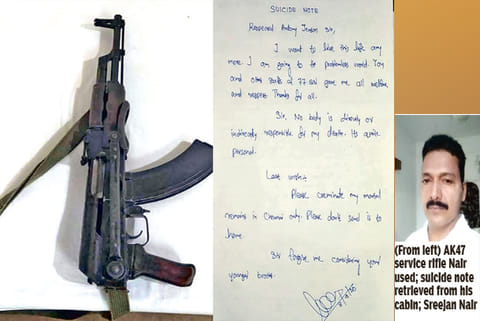 SUICIDE NOTE
Respected Antony Jenson Sir,
I want to like this life any
more. I am going to problemless world. You
and other staffs of 77 Bn gave me all welfare
and respect. Thanks for all.
Sir, No body is directly or
indirectly responsible for my death. Its quite
personal.
Last wish:
Please creminate my mortal
remains in Chennai only. Please don't send is to
home.
Sir forgive me considering your
younger brother.
(From left) AK47
service rifle Nair
used; suicide note
retrieved from his
cabin; Sreejan Nair